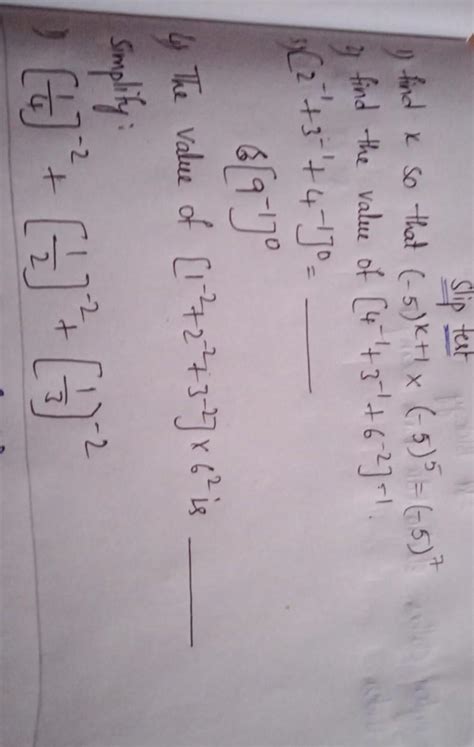 Slip test
1) find x so that (-5)^x+1 × (-5)^5 = (-5)^7
2) find the value of [4^-1 + 3^-1 + 6^-2]^-1.
3) [2^-1 + 3^-1 + 4^-1]^0 = ______
& [9^-1]^0
4) The value of [1^-2 + 2^-2 + 3^-2] × 6^2 is ______
Simplify:
) [1/4]^-2 + [1/2]^-2 + [1/3)^-2